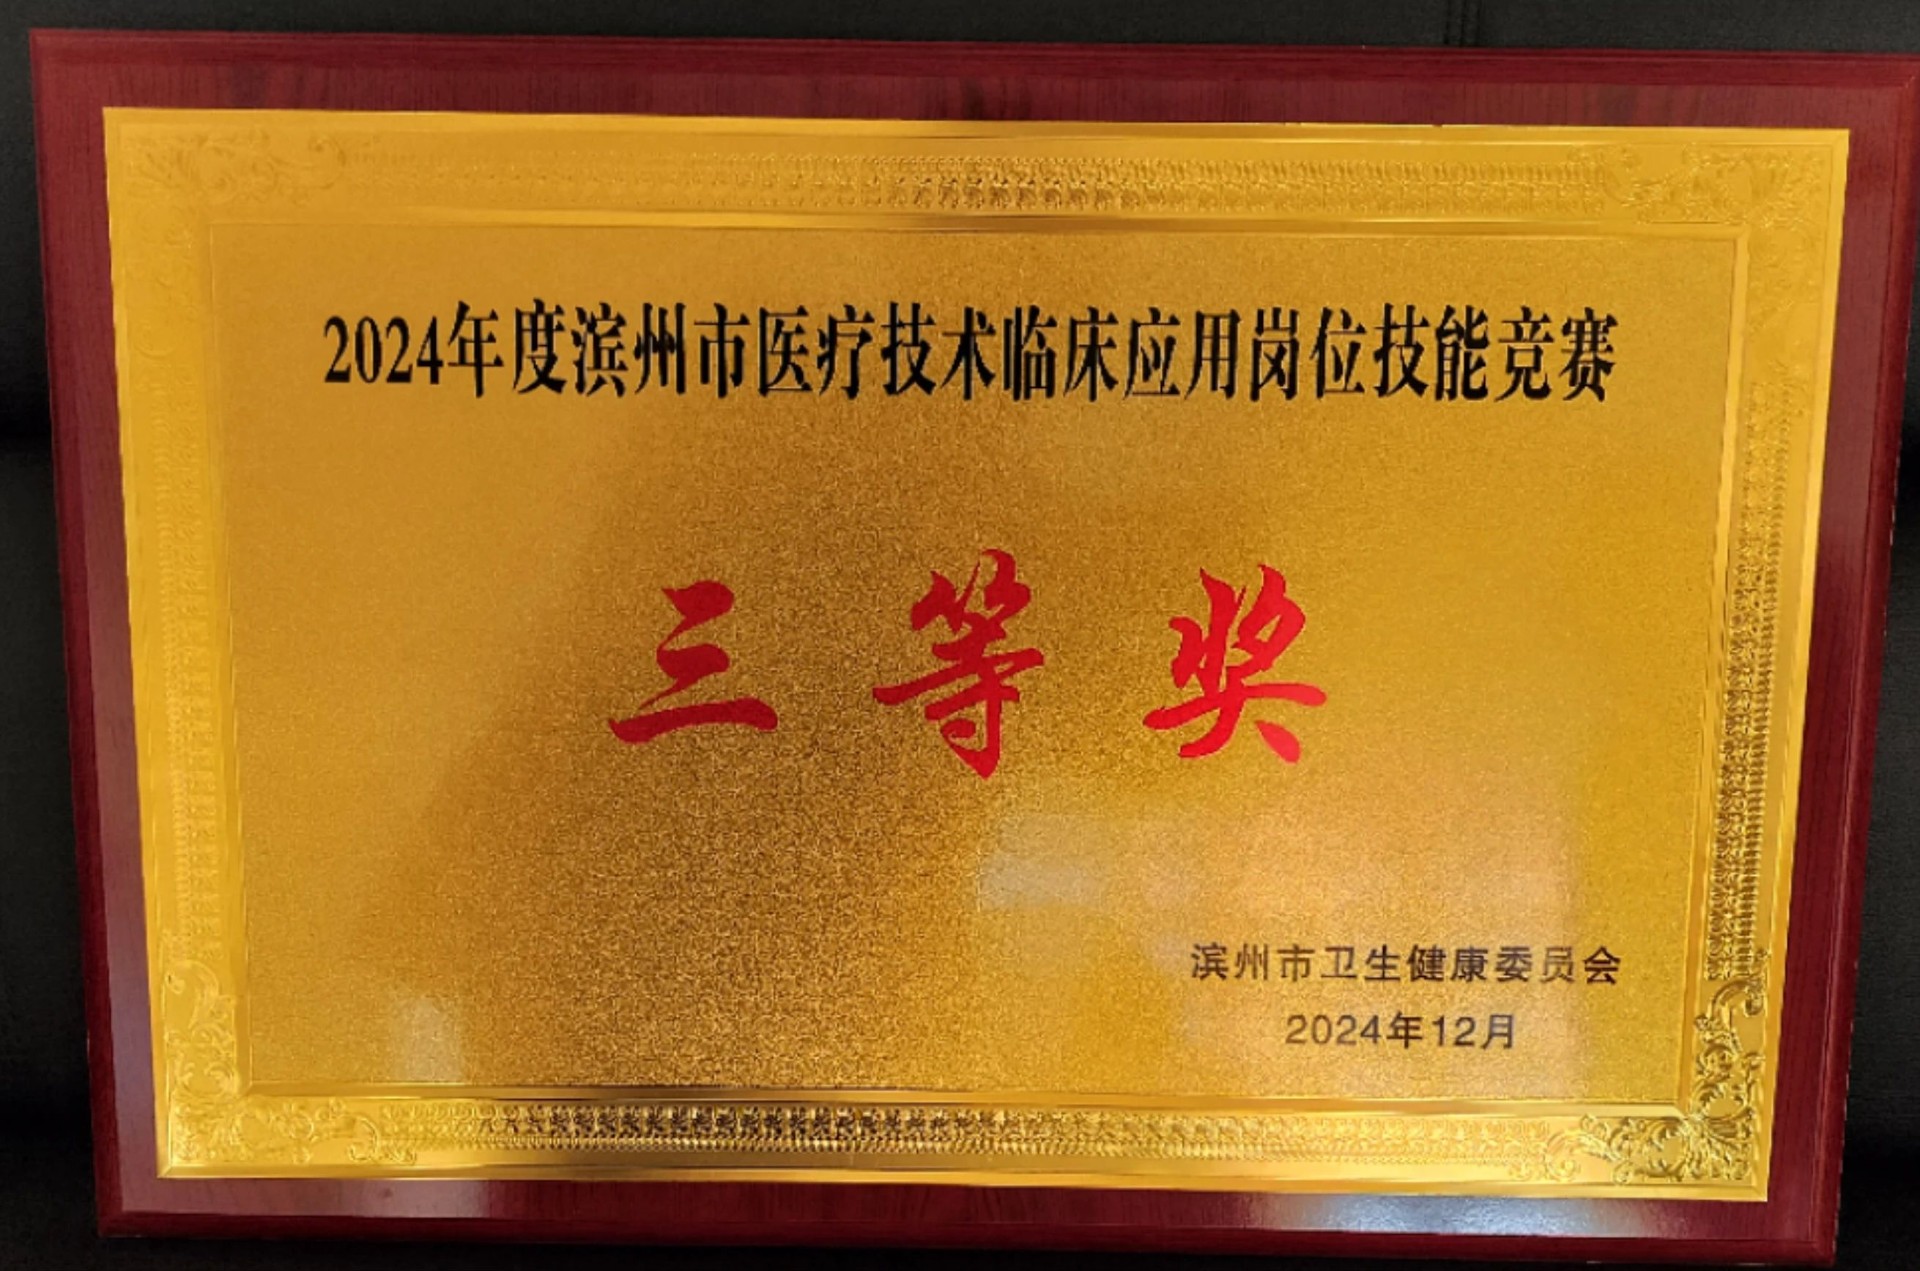 2024年度滨州市医疗技术临床应用岗位技能竞赛
三等奖
滨州市卫生健康委员会
2024年12月